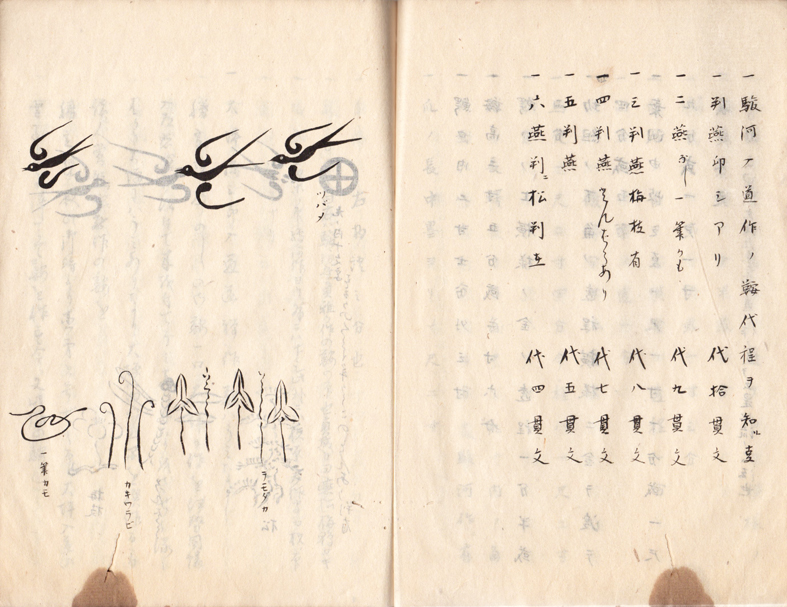 一 駿河ノ道作ノ鞍代程ヲ知ル支
一 判燕印シアリ 代拾貫文
一 二燕 一筆かも 代九貫文
一 三判燕梅枝有 代八貫文
一 四判燕 代七貫文
一 五判燕 代五貫文
一 六燕判ニ松判立 代四貫文
ツバメ
ヲモダカ
カキワラビ
一筆カモ